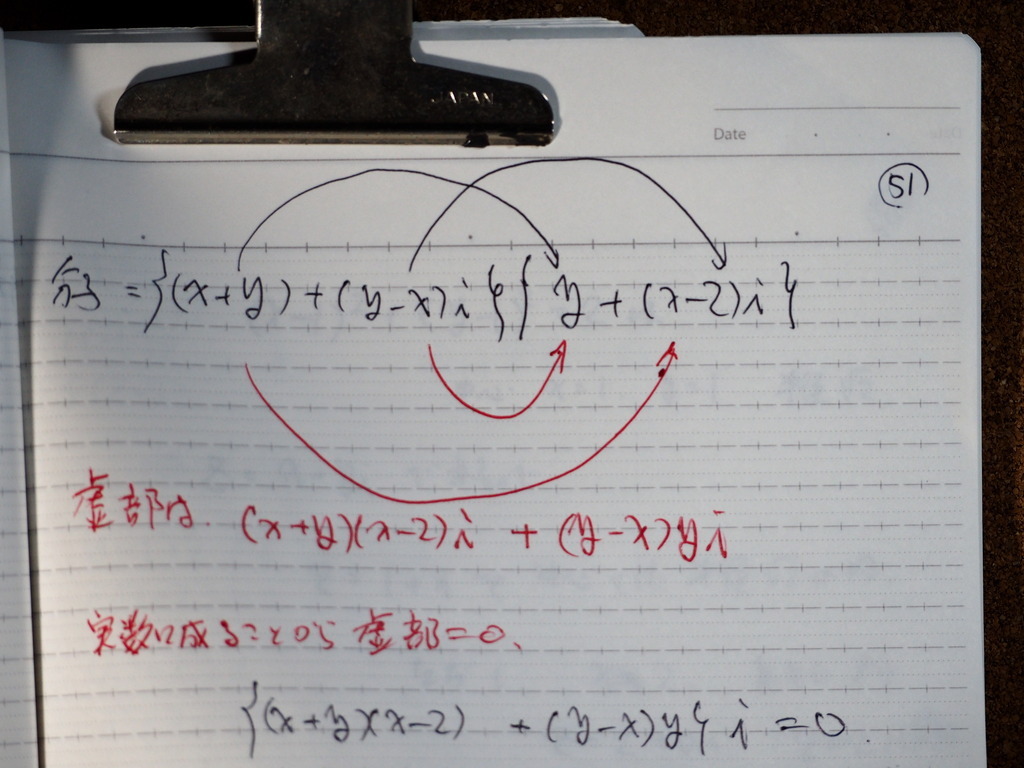 JAPAN
Date
51
分子 = {(x+y)+(y-x)i}{y+(x-2)i}
虚部は. (x+y)(x-2)i + (y-x)yi
実数に成ることから 虚部=0、
{(x+y)(x-2) + (y-x)y} i = 0.